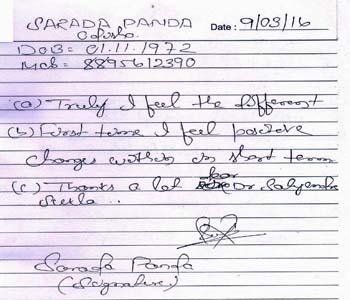 SARADA PANDA Date: 9/03/16
Odisha
DOB= 01.11.1972
Mob= 8895612390
(a) Truly I feel the different
(b) First time I feel positive
changes within in short term
(c) Thanks a lot for Dr.
Sarada Panda
(Signature)